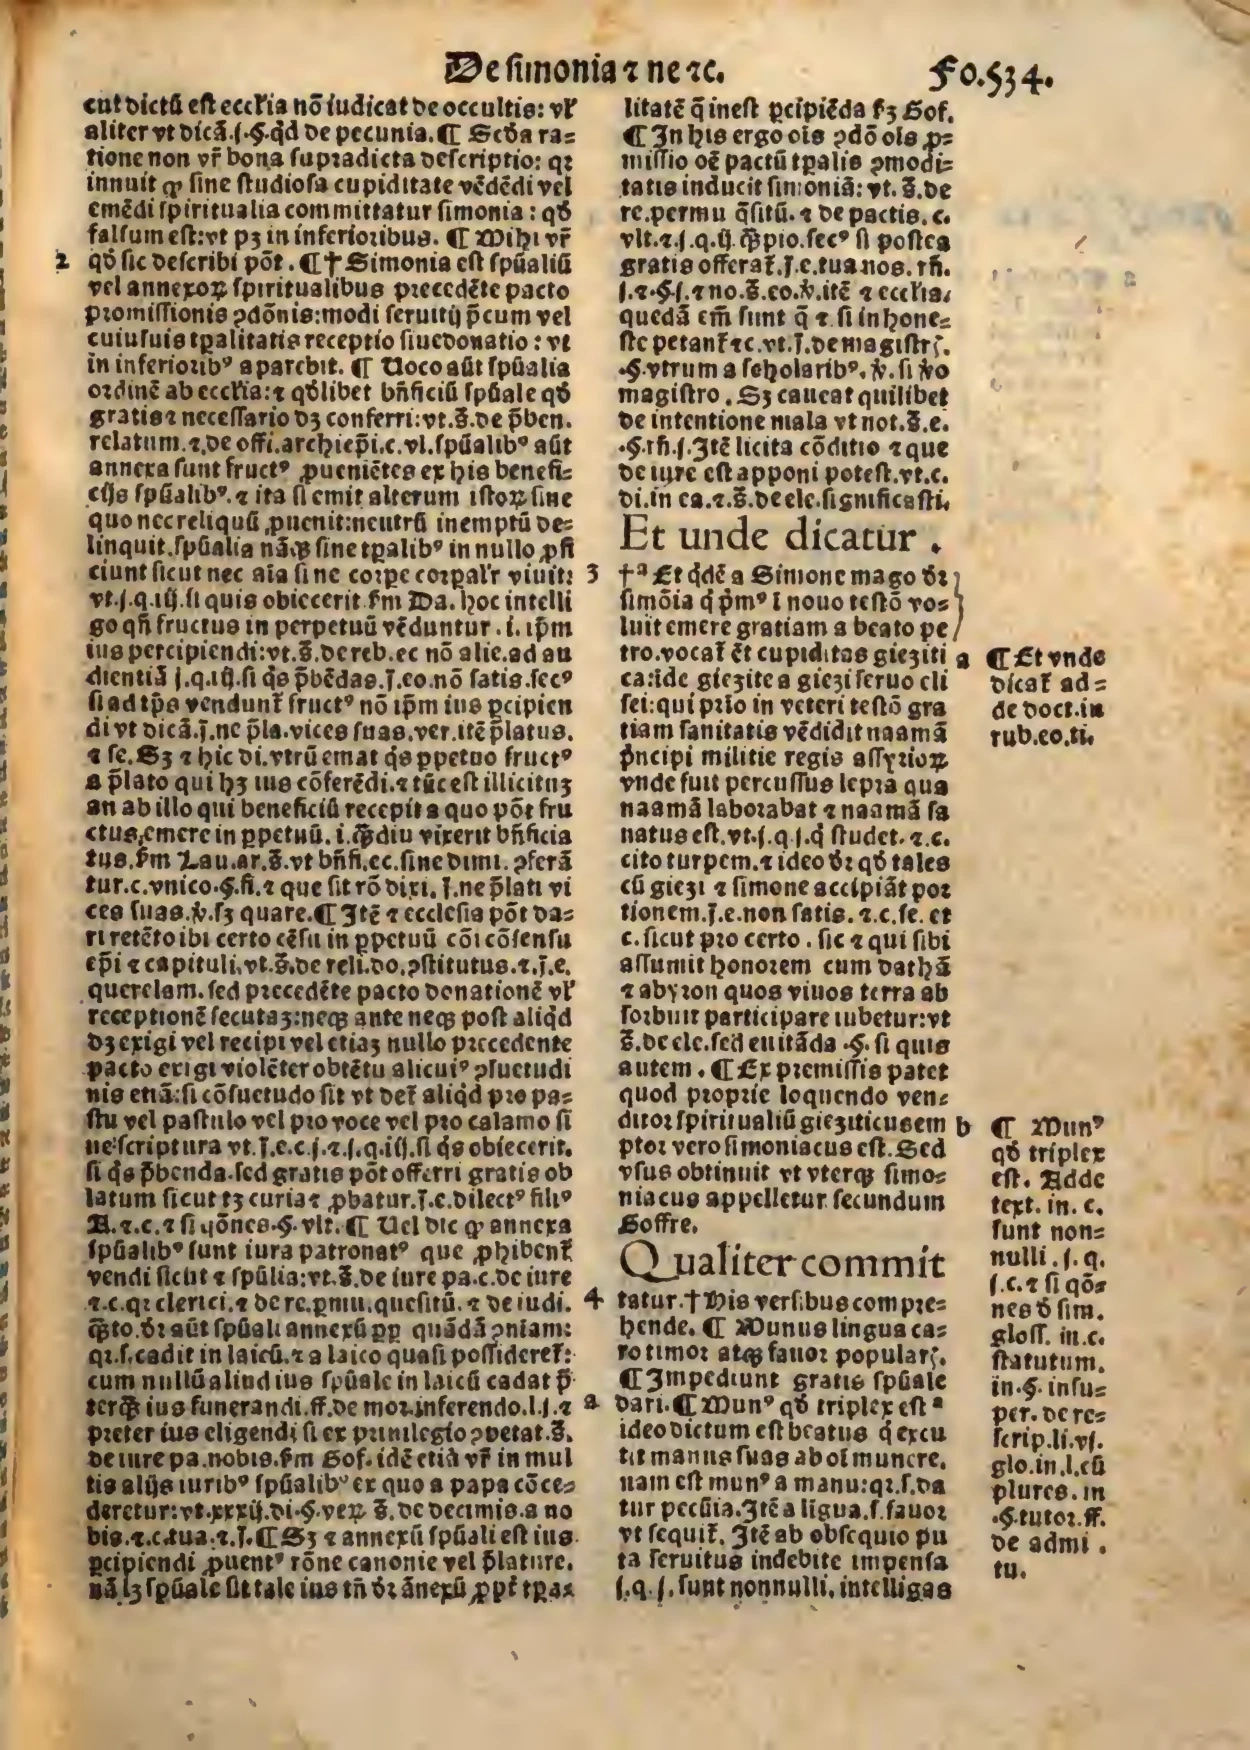 De simonia ⁊ ne ⁊c.
Fo.534.
cut dictũ est eccl'ia nõ iudicat de occultis: vl'
aliter vt dicã.j.§.qd̃ de pecunia.¶ Scd̃a ra=
tione non vr̃ bona supradicta descriptio: qꝛ
innuit ꝙ sine studiosa cupiditate vẽdẽdi vel
emẽdi spiritualia committatur simonia : qđ
falsum est:vt pꝫ in inferioribus. ¶ Mihi vr̃
2 qđ sic describi põt . ¶ † Simonia est spũaliũ
vel annexoꝝ spiritualibus precedẽte pacto
promissionis ꝯdõnis:modi seruitij p̃cum vel
cuiusuis tꝑalitatis receptio siue donatio : vt
in inferiorib⁹ aparebit. ¶ Uoco aũt spũalia
ordinẽ ab eccl'ia: ⁊ qđlibet bñficiũ spũale qđ
gratis ⁊ necessario dꝫ conferri:vt.s̃.de p̃ben.
relatum.⁊.de offi.archiep̃i.c.vl.spũalib⁹ aũt
annexa sunt fruct⁹ ꝓueniẽtes ex his benefi=
cijs spũalib⁹. ⁊ ita si emit alterum istoꝝ sine
quo nec reliquũ ꝓuenit:neutrũ inemptũ de=
linquit.spũalia nãqꝫ sine tꝑalib⁹ in nullo ꝓfi
ciunt sicut nec aĩa sine corpe corpal'r viuit:
vt.j.q.iij.si quis obiecerit.fm Da. hoc intelli
go qñ fructus in perpetuũ vẽduntur . i. ip̃m
ius percipiendi:vt.s̃.de reb.ec nõ alie.ad au
dientiã j.q.iij.si q̃s p̃bẽdas.j̃.eo.nõ satis.sec⁹
si ad tp̃s vendunt̃ fruct⁹ nõ ip̃m ius ꝑcipien
di vt dicã.j̃.ne p̃la.vices suas.ver.itẽ p̃latus.
⁊ se. Sꝫ ⁊ hic di.vtrũ emat q̃s ꝑpetuo fruct⁹
a p̃lato qui hꝫ ius cõferẽdi.⁊ tũc est illicituꝫ
an ab illo qui beneficiũ recepit a quo põt fru
ctus emere in ꝑpetuũ. i.qꝫ̃diu vixerit bñficia
tus.fm Lau.ar.s̃.vt bñfi.ec.sine dimi. ꝯferã
tur.c.vnico.§.fi.⁊ que sit rõ dixi. j̃.ne p̃lati vi
ces suas.ꝟ.sꝫ quare.¶ Itẽ ⁊ ecclesia põt da=
ri retẽto ibi certo cẽsu in ꝑpetuũ cõi cõsensu
ep̃i ⁊ capituli.vt.s̃.de reli.do.ꝯstitutus.⁊.j̃.e.
querelam. sed precedẽte pacto donationẽ vl'
receptionẽ secutaꝫ:neqꝫ ante neqꝫ post aliqd̃
dꝫ exigi vel recipi vel etiaꝫ nullo precedente
pacto exigi violẽter obtẽtu alicui⁹ ꝯsuetudi
nis etiã:si cõsuetudo sit vt det̃ aliqd̃ pro pa=
stu vel pastulo vel pro voce vel pro calamo si
ue scriptura vt.j̃.e.c.j.⁊.j.q.iij.si q̃s obiecerit.
si q̃s p̃benda.sed gratis põt offerri gratis ob
latum sicut tꝫ curia ⁊ ꝓbatur.j̃.e.dilect⁹ fili⁹
R.⁊.c.⁊ si q̃ones.§.vlt. ¶ Uel dic ꝙ annexa
spũalib⁹ sunt iura patronat⁹ que ꝓhibent̃
vendi sicut ⁊ spũlia:vt.s̃.de iure pa.c.de iure
⁊.c.qꝛ clerici.⁊ de re.permu.quesitũ. ⁊ de iudi.
qꝫ̃to.dꝛ aũt spũali annexũ ꝓꝑ quãdã ꝯniam:
qꝛ.s.cadit in laicũ.⁊ a laico quasi possideret̃:
cum nullũ aliud ius spũale in laicũ cadat p̃
terqꝫ̃ ius funerandi.ff.de mor.inferendo.l.j.⁊
preter ius eligendi si ex priuilegio ꝯpetat.s̃.
de iure pa.nobis.fm Gof. idẽ etiã vr̃ in mul
tis alijs iurib⁹ spũalib⁹ ex quo a papa cõce=
deretur:vt.xxxij.di.§.veꝝ s̃. de decimis.a no
bis.⁊.c.tua.⁊.j̃. ¶ Sꝫ ⁊ annexũ spũali est ius
ꝑcipiendi ꝓuent⁹ rõne canonie vel p̃lature.
nã lꝫ spũale sit tale ius tñ dꝛ ãnexũ ꝓpt̃ tꝑa=
litatẽ q̃ inest ꝑcipiẽda fꝫ Gof.
¶ In his ergo oĩs ꝯdõ oĩs ꝓ=
missio oẽ pactũ tꝑalis ꝯmodi=
tatis inducit simoniã: vt. s̃.de
re.permu q̃sitũ. ⁊ de pactis. c.
vlt.⁊.j.q.ij.qꝫ̃pio.sec⁹ si postea
gratis offerat̃.j̃.e.tua nos. rñ.
j.⁊.§.j.⁊ no.s̃.eo.ꝟ.itẽ ⁊ eccl'ia.
quedã em̃ sunt q̃ ⁊ si in hone=
ste petant̃ ⁊c.vt.j̃.de magistris.
.§.vtrum a scholarib⁹.ꝟ.si ꝟo
magistro . Sꝫ caueat quilibet
de intentione mala vt not.s̃.e.
.§.rñ.j.Itẽ licita cõditio ⁊ que
de iure est apponi potest.vt.c.
di.in ea.⁊.s̃.de ele.significasti.
Et unde dicatur .
3 †ᵃ Et qd̃ẽ a Simone mago dꝛ
simõia q̃ p̃m⁹ ĩ nouo testõ vo=
luit emere gratiam a beato pe
tro.vocat̃ ẽt cupiditas gieziti a
ca:ide giezite a giezi seruo eli
sei:qui prĩo in veteri testõ gra
tiam sanitatis vẽdidit naamã
p̃ncipi militie regis assyrioꝝ
vnde fuit percussus lepra qua
naamã laborabat ⁊ naamã sa
natus est.vt.j.q.j.q̃ studet. ⁊.c.
cito turpem.⁊ ideo dꝛ qđ tales
cũ giezi ⁊ simone accipiãt por
tionem.j̃.e.non satis.⁊.c.se. et
c. sicut pro certo . sic ⁊ qui sibi
assumit honorem cum dathã
⁊ abyron quos viuos terra ab
sorbuit participare iubetur:vt
s̃.de ele.sed euitãda .§. si quis
autem . ¶ Ex premissis patet
quod proprie loquendo ven=
ditor spiritualiũ gieziticus em b
ptor vero simoniacus est. Sed
vsus obtinuit vt vterqꝫ simo=
niacus appelletur secundum
Goffre.
Qualiter commit
4 tatur. † His versibus compre=
hende. ¶ Munus lingua ca=
ro timor atqꝫ fauor popularis.
¶ Impediunt gratis spũale
a dari. ¶ Mun⁹ qđ triplex est ᵃ
ideo dictum est beatus q̃ excu
tit manus suas ab oĩ munere.
nam est mun⁹ a manu:qꝛ.s.da
tur pecũia. Itẽ a ligua.s.fauor
vt sequit̃. Itẽ ab obsequio pu
ta seruitus indebite impensa
j.q.j. sunt nonnulli. intelligas
¶ Et vnde
dicat̃ ad=
de doct.in
rub.eo.ti.
¶ Mun⁹
qđ triplex
est. Adde
text. in. c.
sunt non=
nulli . j. q.
j.c.⁊ si q̃õ=
nes đ sim.
gloss. in.c.
statutum.
in.§. insu=
per. de re=
scrip.li.vj.
glo.in.l.cũ
plures. in
.§.tutor.ff.
de admi .
tu.